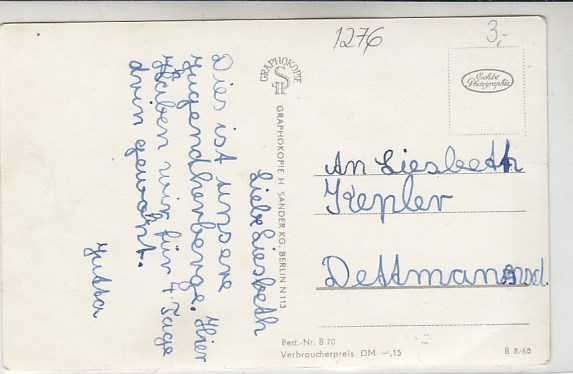 1276
3,-
Echte
Photographie
GRAPHOKOPIE
H S
GRAPHOKOPIE H. SANDER KG, BERLIN N 113
Liebe Liesbeth
Dies ist unsere
Jugendherberge. Hier
haben wir für 4 Tage
drin gewohnt.
Jutta
An Liesbeth
Kepler
Best.-Nr. B 70
Verbraucherpreis DM —,15
B 8/65